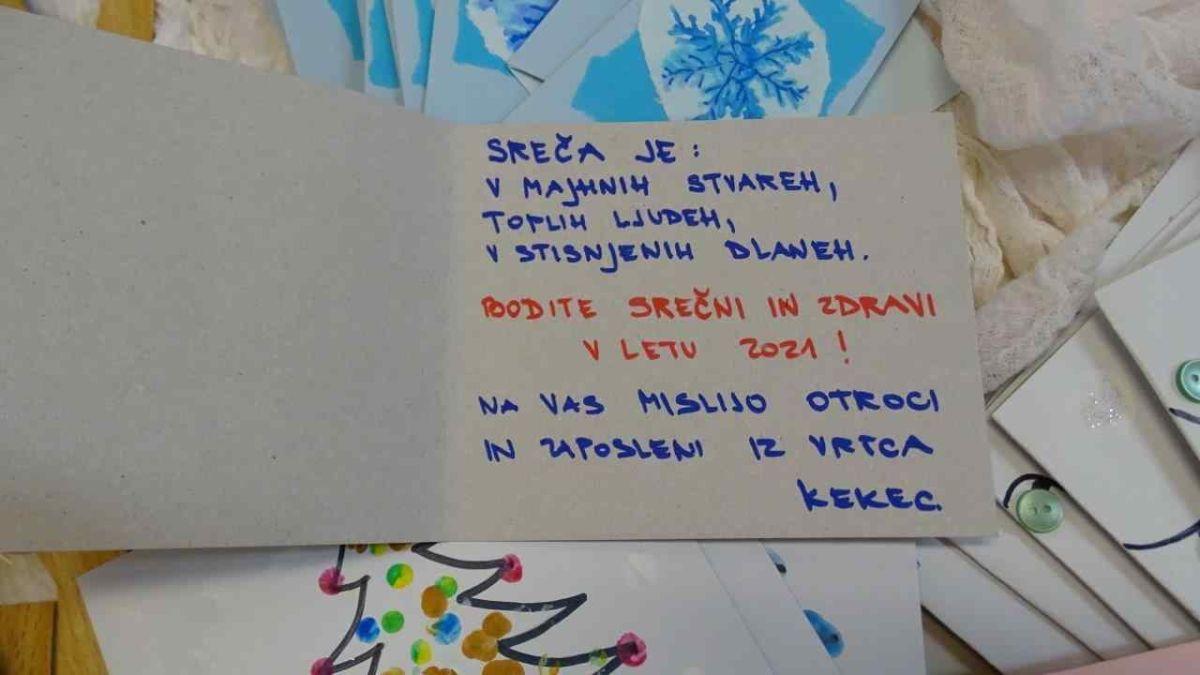 SREČA JE:
V MAJHNIH STVAREH,
TOPLIH LJUDEH,
V STISNJENIH DLANEH.
BODITE SREČNI IN ZDRAVI
V LETU 2021!
NA VAS MISLIJO OTROCI
IN ZAPOSLENI IZ VRTCA
KEKEC.